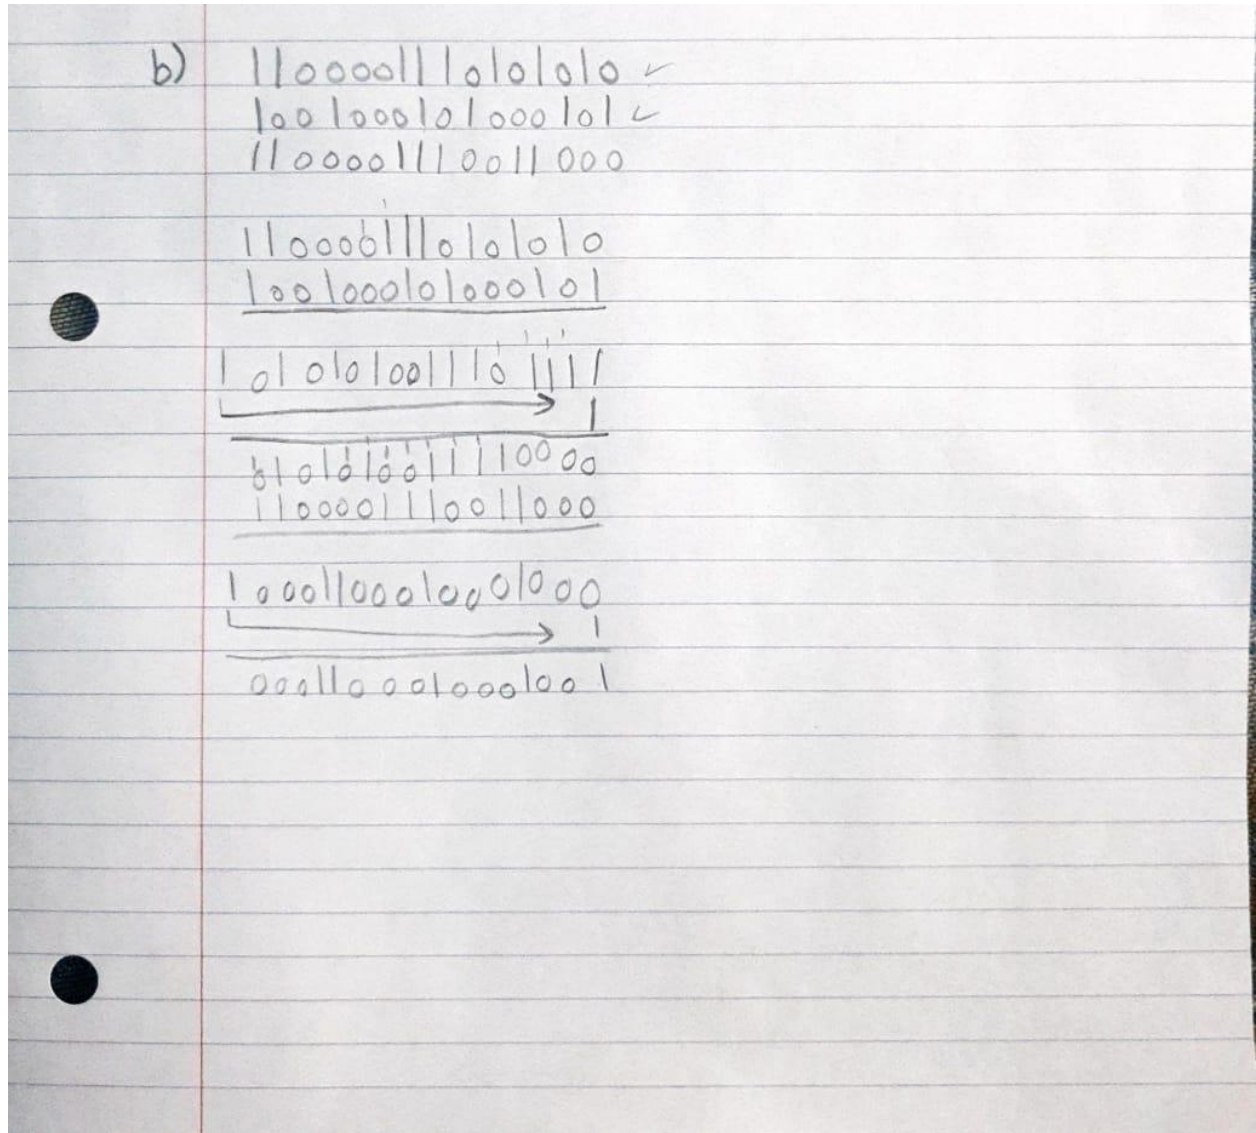 b) 1100001110101010 ✓
1001000101000101 ✓
1100001110011000
1100001110101010
1001000101000101
10101010011101111
1
0101010011110000
1100001110011000
10001100010001000
1
0001100010001001